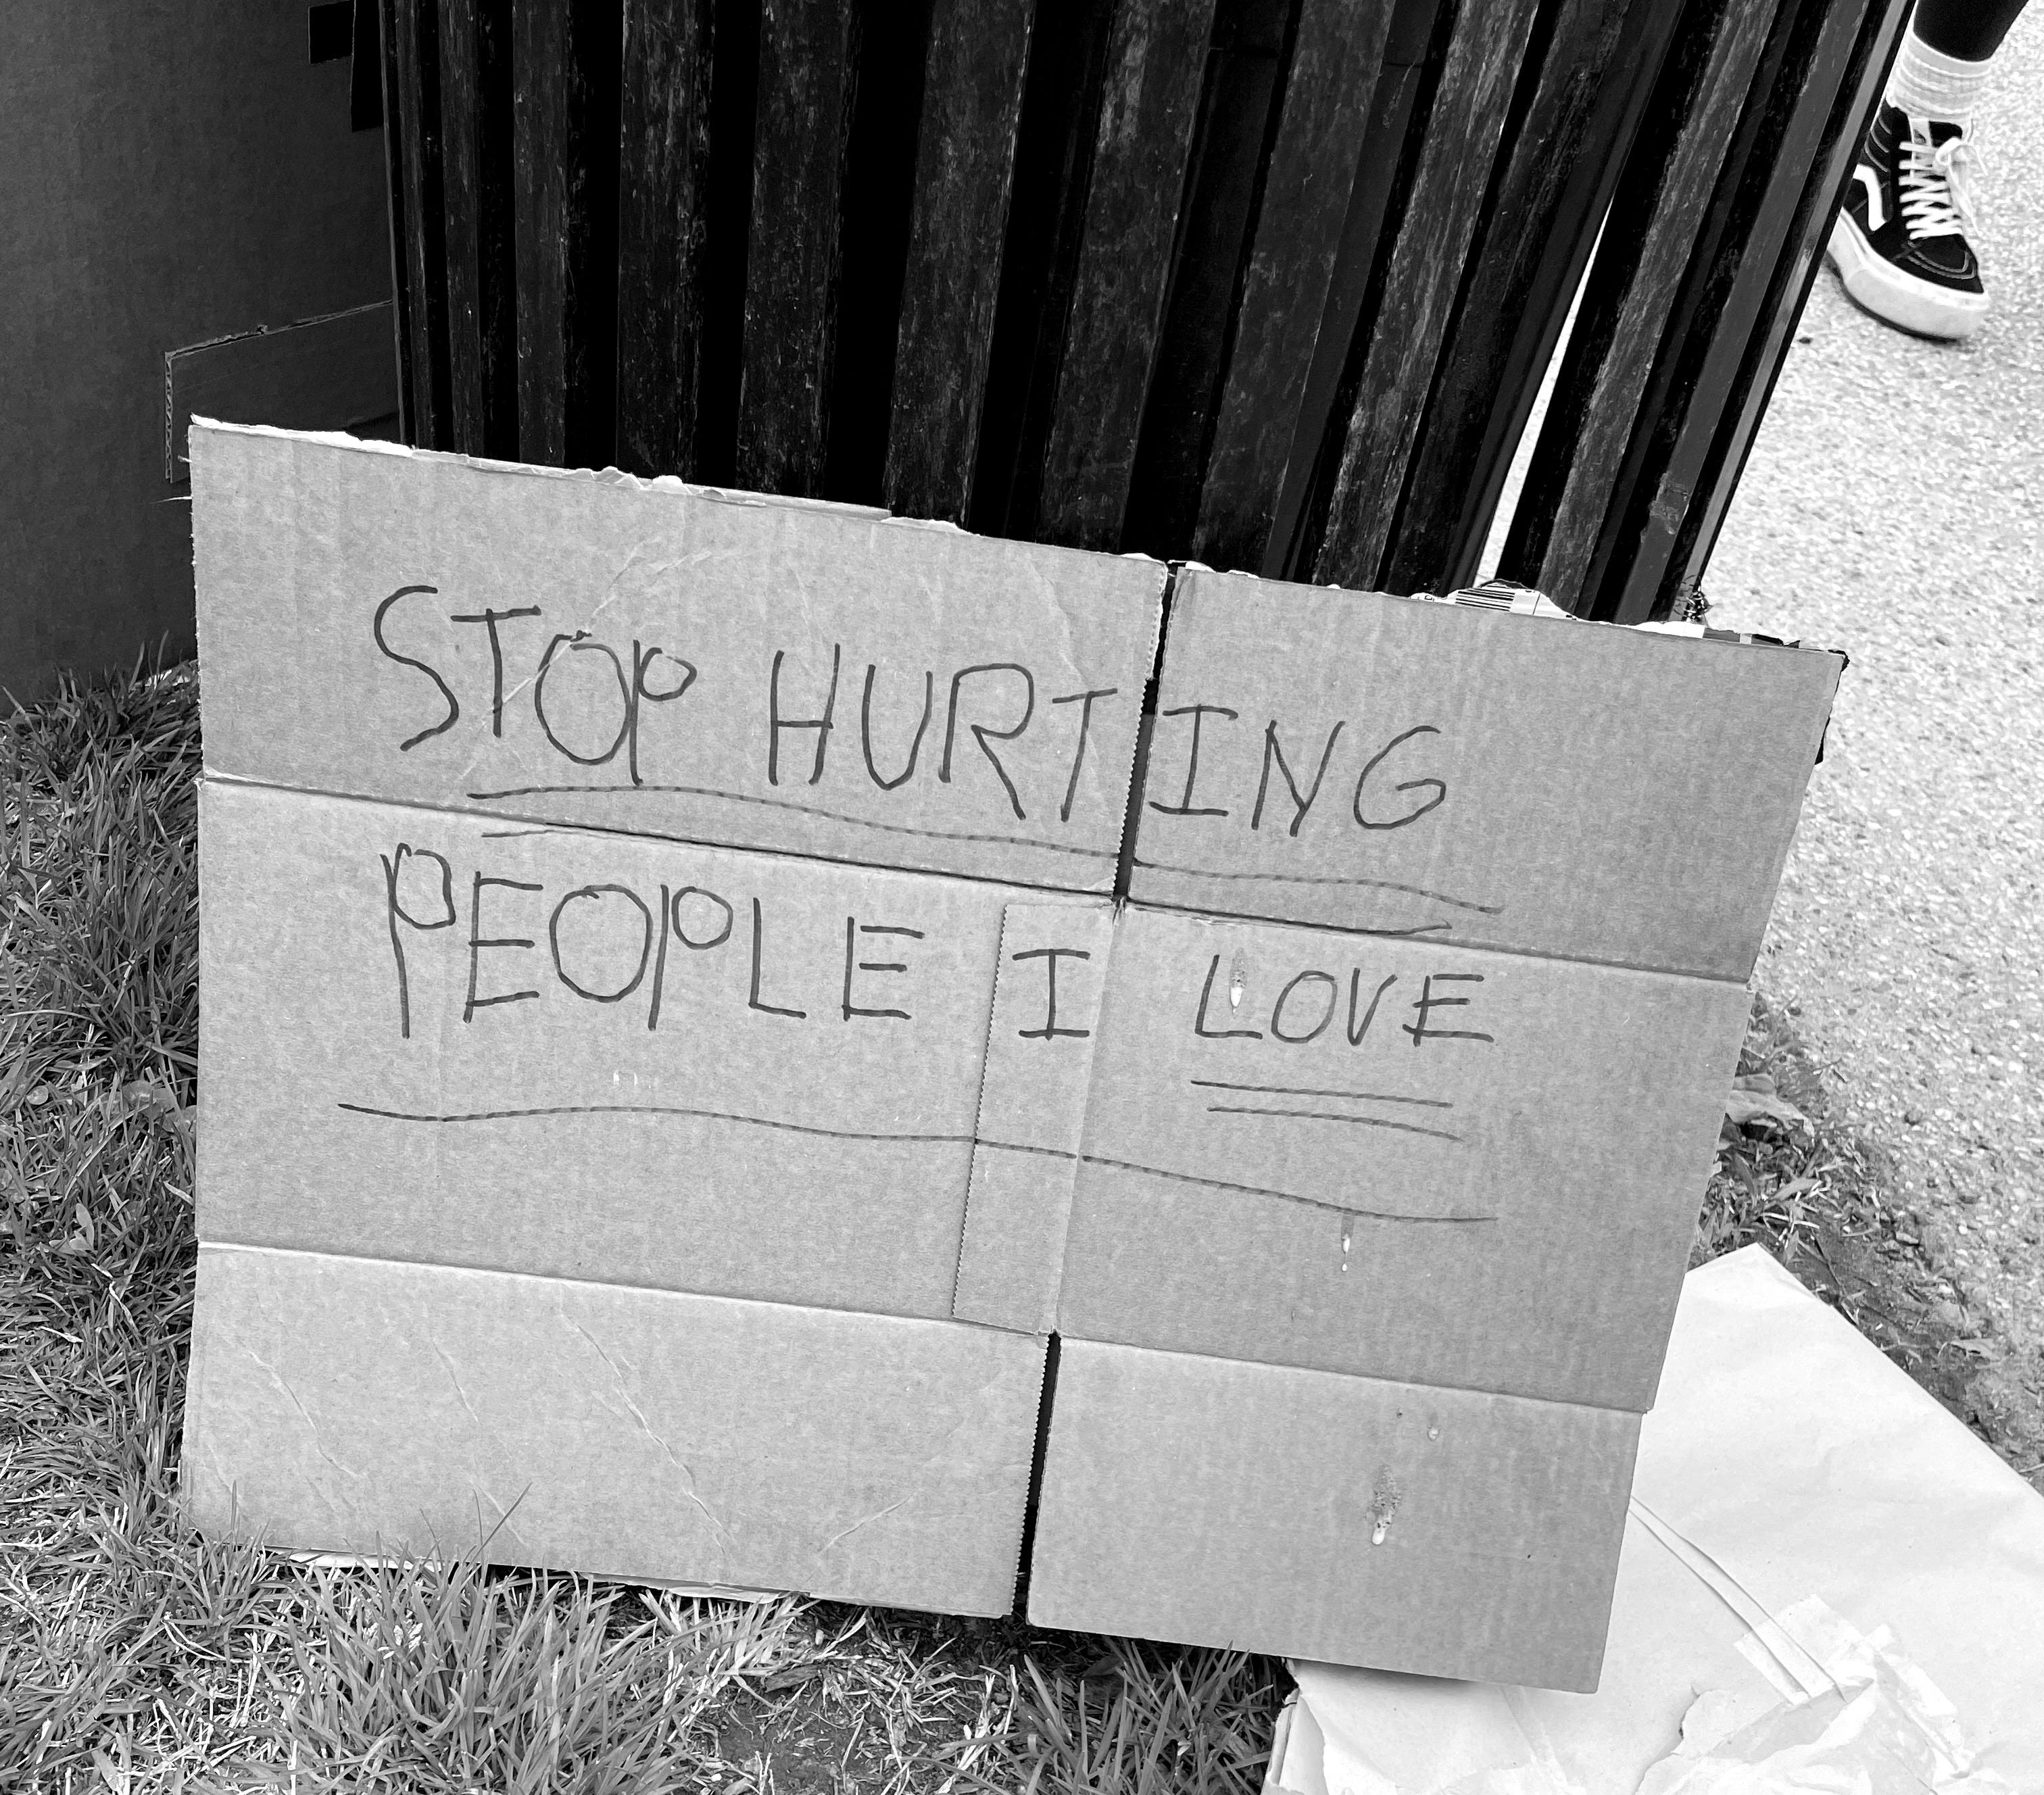 STOP HURTING
PEOPLE I LOVE